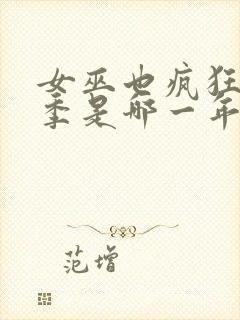 女巫也疯狂
季是哪一年
范增